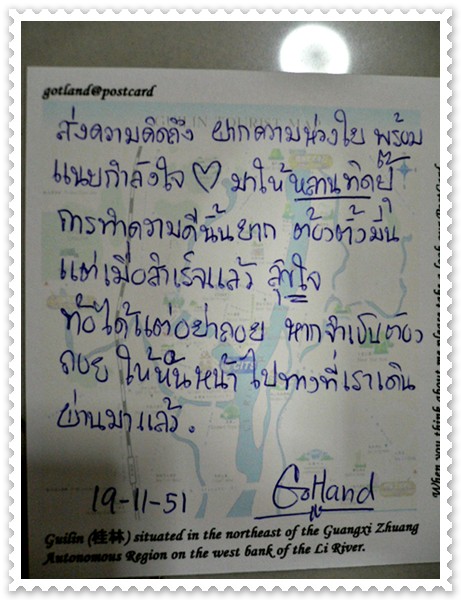 gotland@postcard
ส่งความคิดถึง ฝากความห่วงใย พร้อม
แนบกำลังใจ ♡ มาให้หลานทิดยุ้ย
การทำความดีนั้นยาก ต้องตั้งมั่น
แต่เมื่อสำเร็จแล้ว สุขใจ
ท้อได้แต่อย่าถอย หากจำเป็นต้อง
ถอย ให้หันหน้า ไปทางที่เราเดิน
ผ่านมาแล้ว.
19-11-51
Gotland
Guilin (桂林) situated in the northeast of the Guangxi Zhuang
Autonomous Region on the west bank of the Li River.
When you think about me please